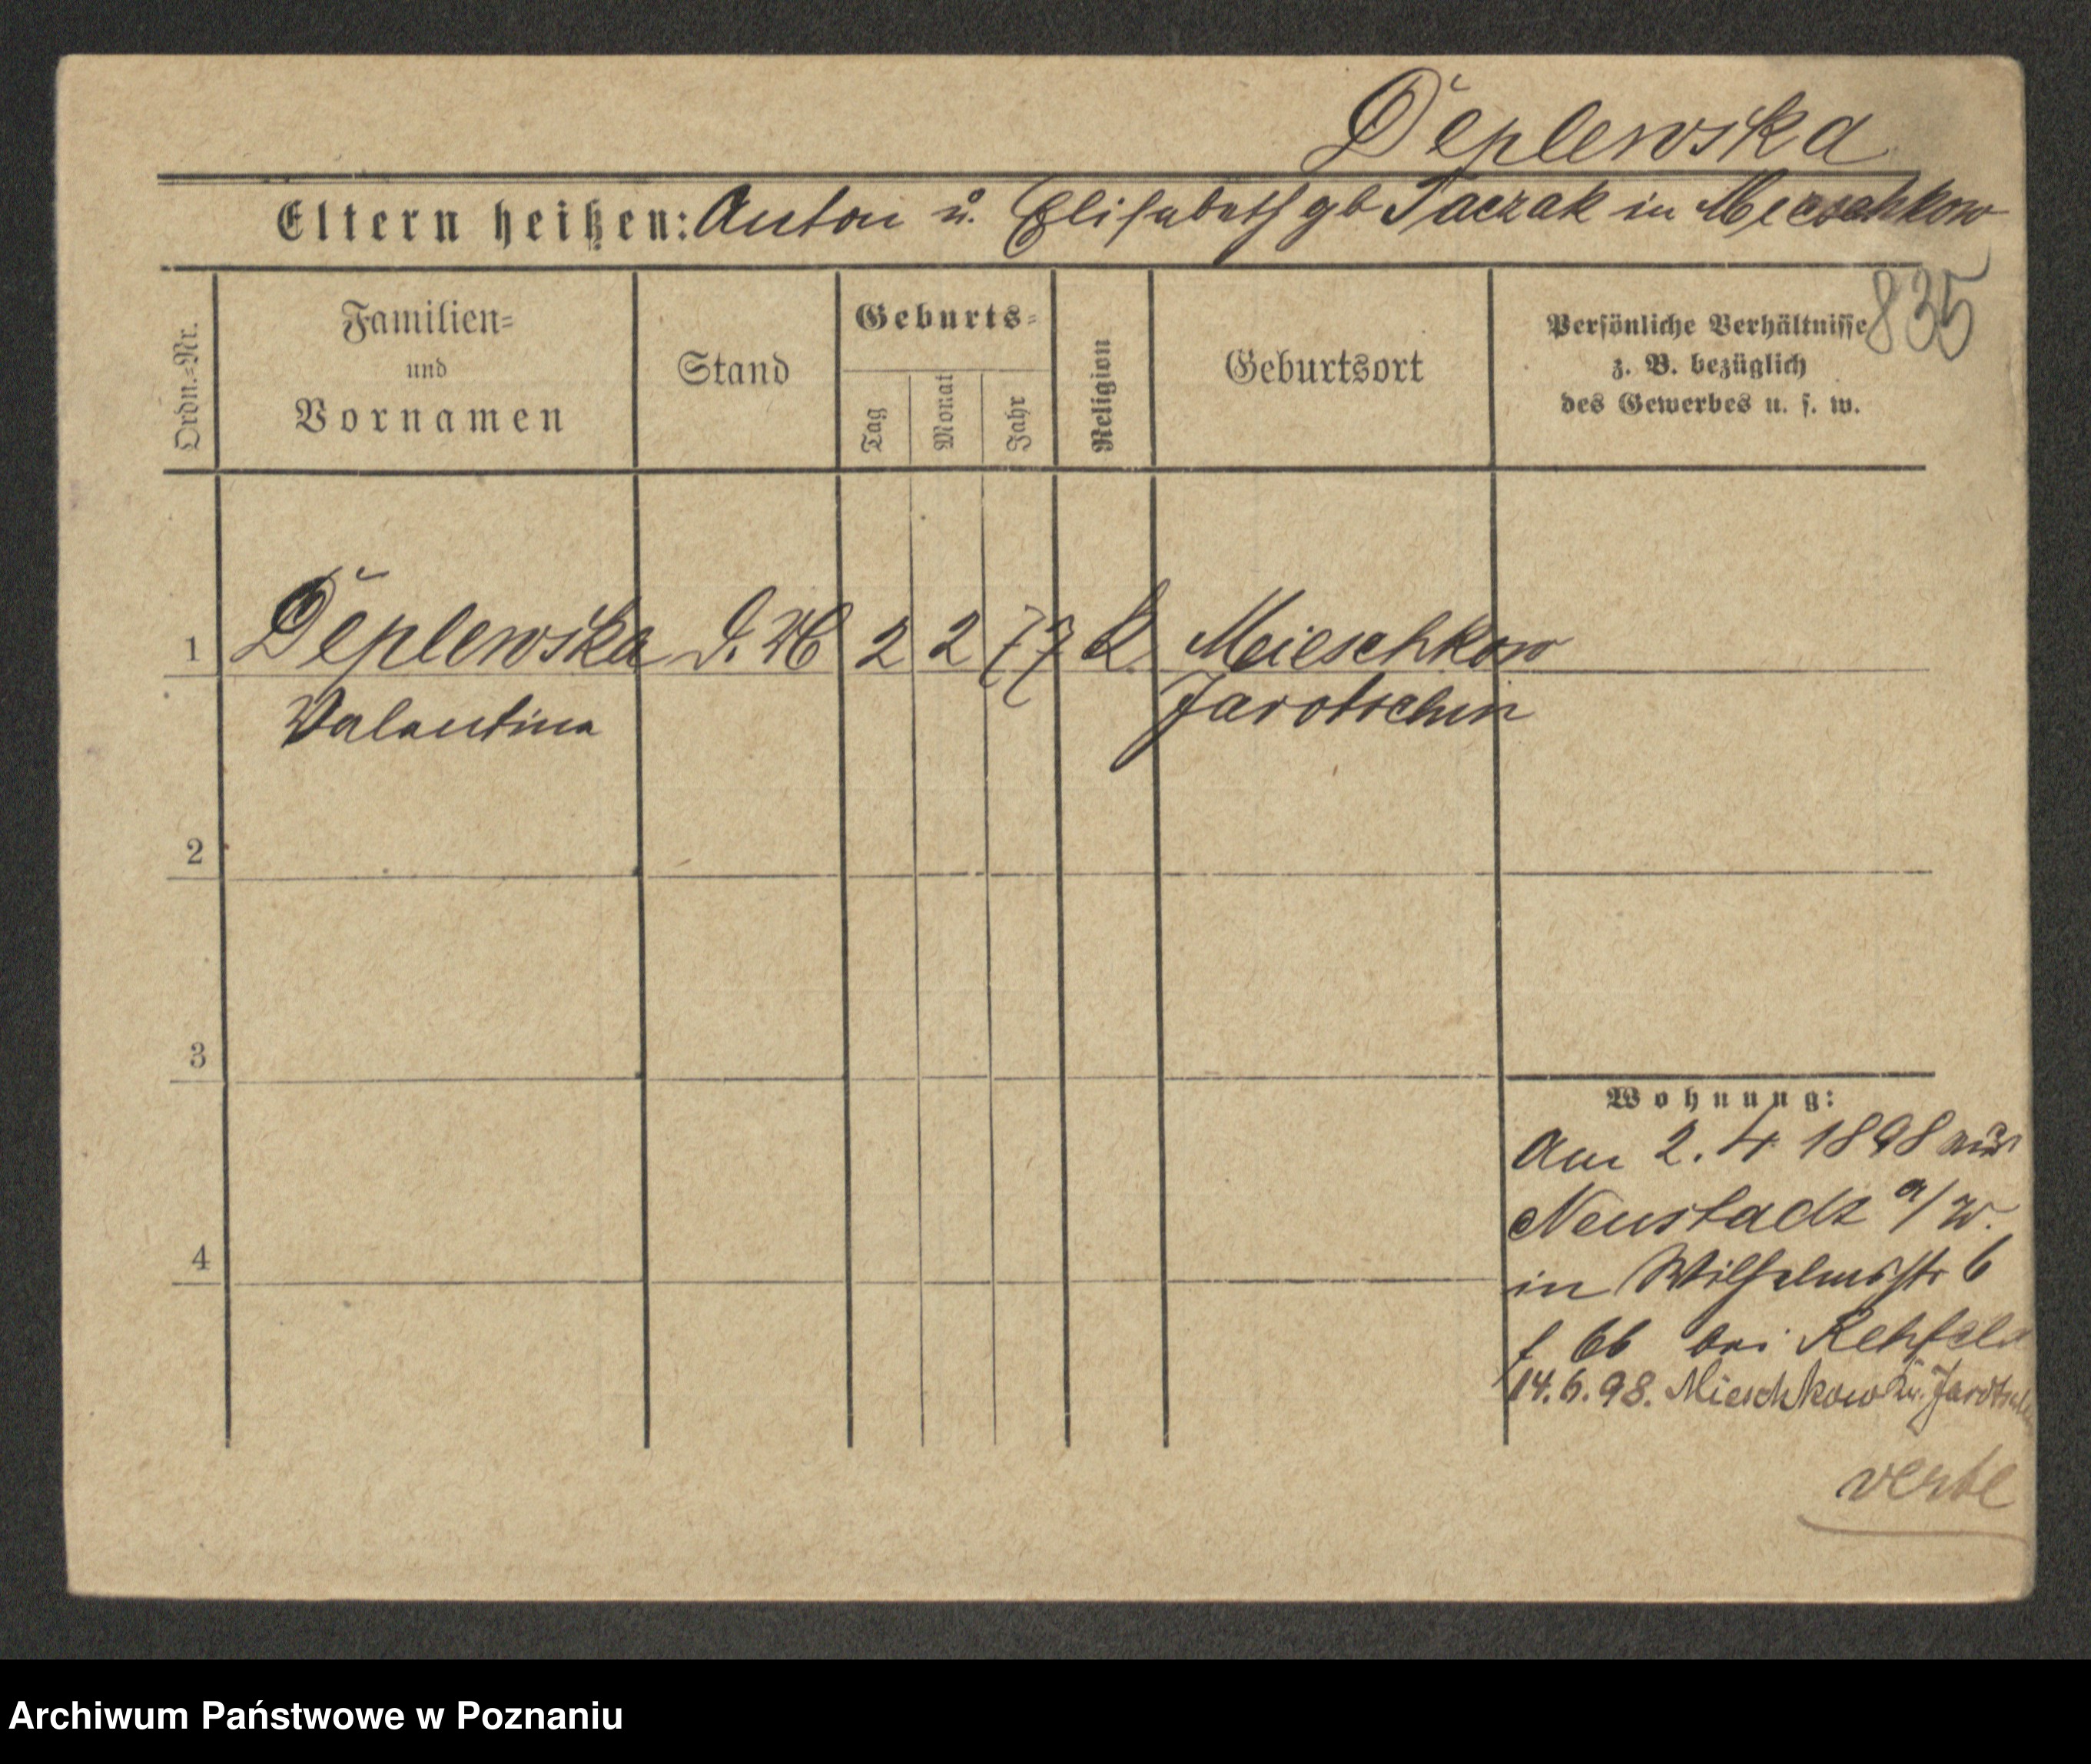 Deplewska
Eltern heißen: Anton u. Elisabeth gb Taczak in Mieschkow
835
Ordn.=Nr.
Familien=
und
Vornamen
Stand
Geburts=
Tag
Monat
Jahr
Religion
Geburtsort
Persönliche Verhältnisse
z. B. bezüglich
des Gewerbes u. s. w.
1 Deplewska d. M 2 2 77 k Meieschkow
Valentina Jarotschin
2
3
4
Wohnung:
Am 2. 4 1898 aus
Neustadt a/W.
in Wilhelmstr 6
66 bei Rehfeld
14.6.98. Mieschkow Kr. Jarotschin
verte
Archiwum Państwowe w Poznaniu